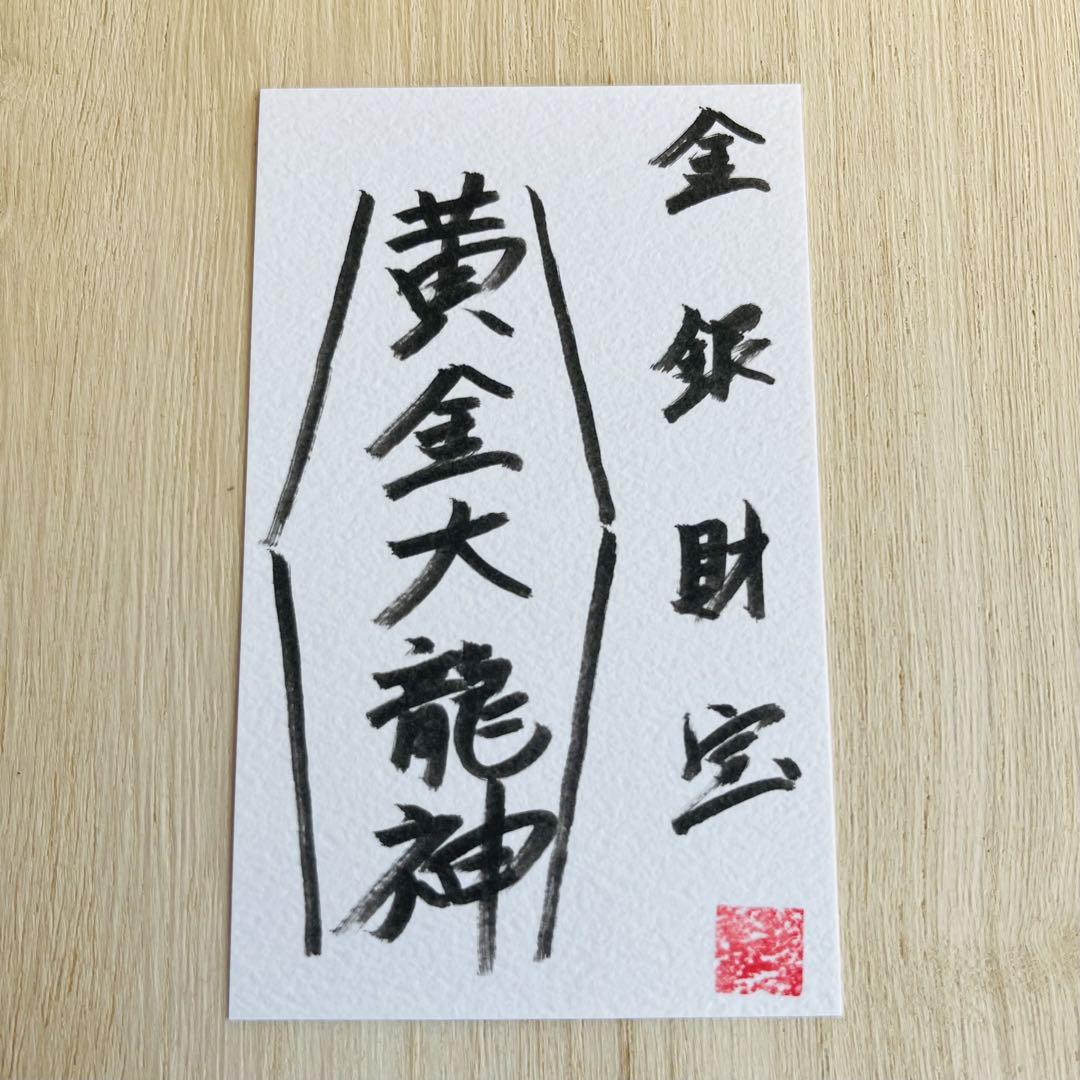 金銀財宝
黄金大龍神